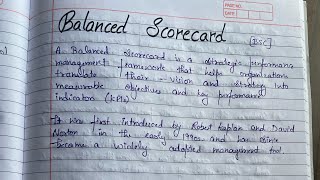 PAGE NO.
DATE
Balanced Scorecard
[BSC]
A Balanced scorecard is a strategic performance
management framework that helps organizations
translate their vision and strategy into
measurable objectives and key performance
indicators (KPIs)
- It was first introduced by Robert Kaplan and David
Norton in the early 1990s and has since
become a widely adopted management tool.